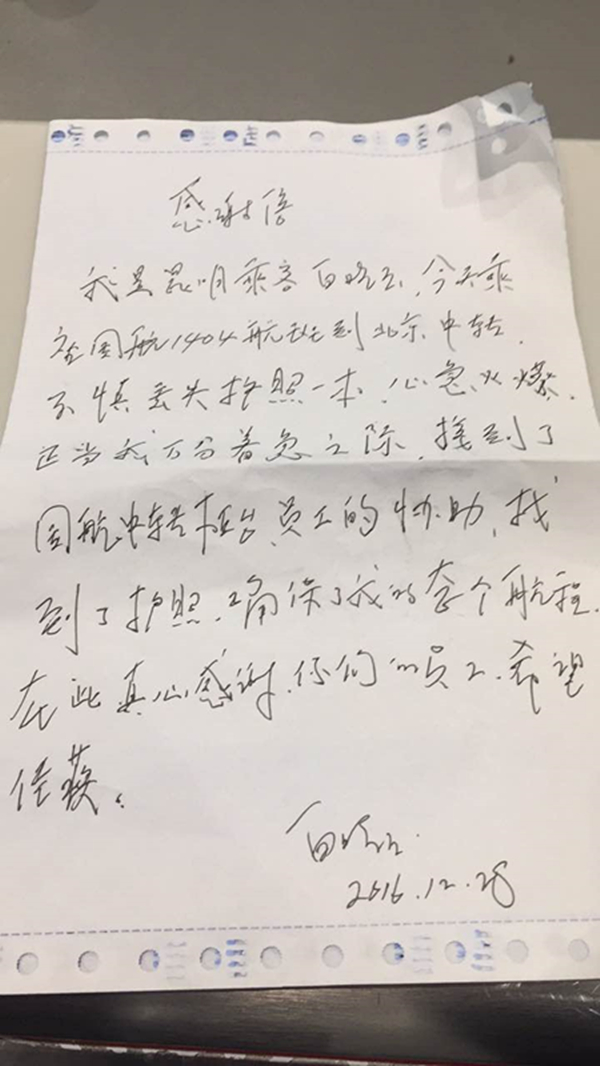 感谢信
我是昆明乘客白晓玉，今天乘
坐国航1404航班到北京中转，
不慎丢失护照一本，心急火燎，
正当我万分着急之际，找到了
国航中转柜台员工的协助，找
到了护照，确保了我的整个航程，
在此真心感谢你们的员工，希望
传获。
白晓
2016.12.28